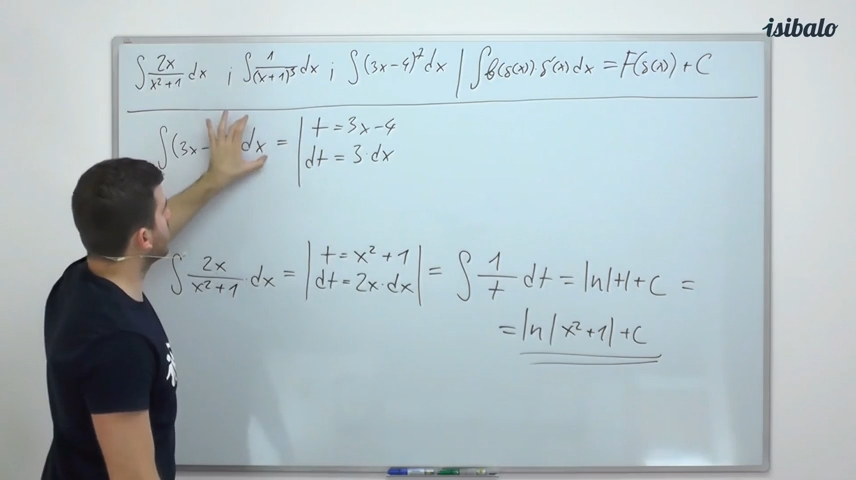 isibalo
∫ 2x/(x²+1) dx ; ∫ 1/(x+1)³ dx ; ∫ (3x-4)⁷ dx | ∫ f(g(x)) g'(x) dx = F(g(x)) + C
∫ (3x- dx = | t = 3x-4
dt = 3·dx
∫ 2x/(x²+1) · dx = | t = x²+1
dt = 2x·dx | = ∫ 1/t dt = ln|t| + C =
= ln|x²+1| + C